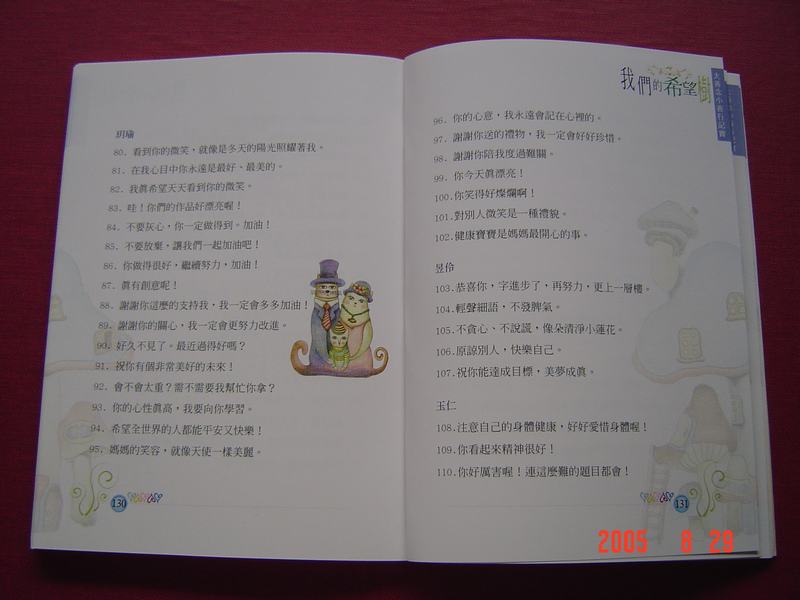 玥瑜
80. 看到你的微笑，就像是冬天的陽光照耀著我。
81. 在我心目中你永遠是最好、最美的。
82. 我真希望天天看到你的微笑。
83. 哇！你們的作品好漂亮喔！
84. 不要灰心，你一定做得到。加油！
85. 不要放棄，讓我們一起加油吧！
86. 你做得很好，繼續努力，加油！
87. 真有創意呢！
88. 謝謝你這麼的支持我，我一定會多多加油！
89. 謝謝你的關心，我一定會更努力改進。
90. 好久不見了。最近過得好嗎？
91. 祝你有個非常美好的未來！
92. 會不會太重？需不需要我幫忙你拿？
93. 你的心性真高，我要向你學習。
94. 希望全世界的人都能平安又快樂！
95. 媽媽的笑容，就像天使一樣美麗。
130
我們的希望樹
大善念小善行記實
96. 你的心意，我永遠會記在心裡的。
97. 謝謝你送的禮物，我一定會好好珍惜。
98. 謝謝你陪我度過難關。
99. 你今天真漂亮！
100.你笑得好燦爛啊！
101.對別人微笑是一種禮貌。
102.健康寶寶是媽媽最開心的事。
昱伶
103.恭喜你，字進步了，再努力，更上一層樓。
104.輕聲細語，不發脾氣。
105.不貪心、不說謊，像朵清淨小蓮花。
106.原諒別人，快樂自己。
107.祝你能達成目標，美夢成真。
玉仁
108.注意自己的身體健康，好好愛惜身體喔！
109.你看起來精神很好！
110.你好厲害喔！連這麼難的題目都會！
131
2005 8 29